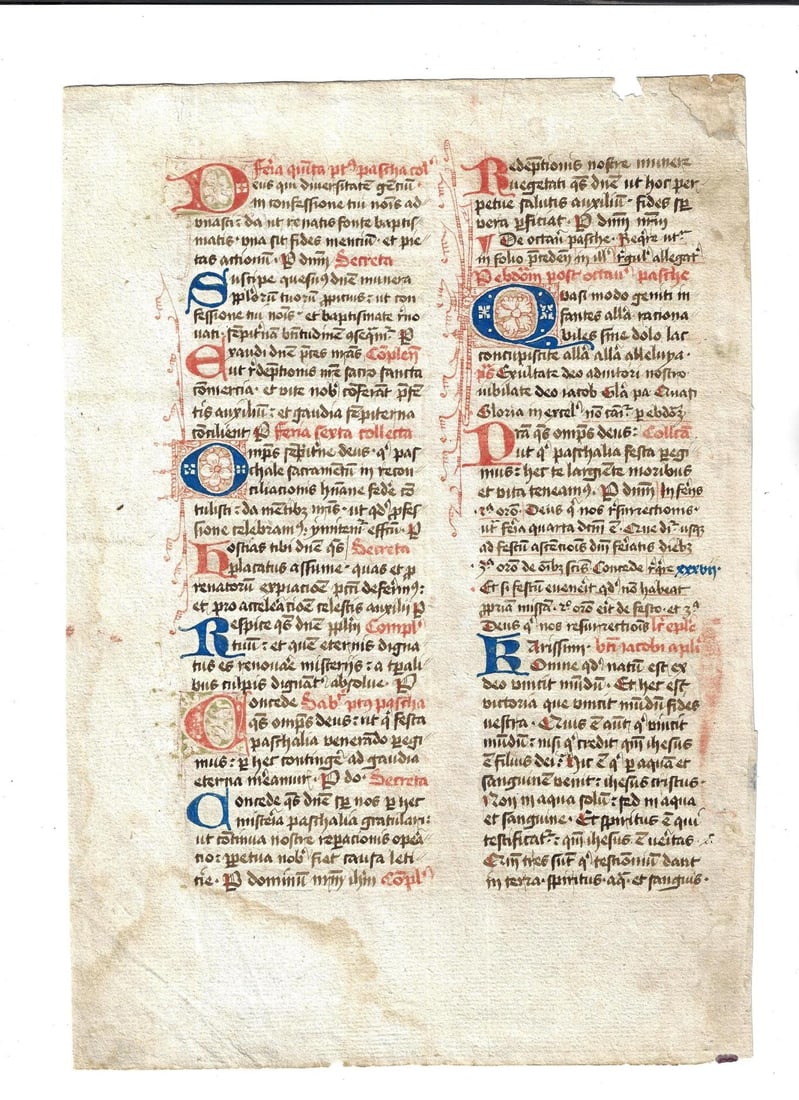 Feria quīta pꝰ pascha col
Deus qui diversitatē gentiū·
in confessione tui noīs ad
unasti: da ut renatis fonte baptis
matis· una sit fides mentiū· et pie
tas actionū· P dnm Secreta
Suscipe quesuꝰ dne munera
pploru tuoru ꝓpitius: ut con
fessione tui nois· et baptismate
P
Exaudi dne pces nras Complen
ut redeptionis nre sacro sancta
comercia· et vite nob coferat pse
tis auxiliu: et gaudia sempiterna
cocilient P Feria sexta collecta
Omps sempitne deus· q pas
chale sacramentu in recon
ciliationis humane federe co
tulisti: da metibꝫ nris· ut qd profes
sione celebramꝰ: effcu· P
Hostias tibi dne qs Secreta
placatus assume· quas et p
renatoru expiatioe pcti deferimꝰ:
et pro acceleratioe celestis auxilii P
Respice qs dne pplm Compl
tuu: et que eternis digna
tus es renovare misteriis: a tpali
bus culpis dignat absolve· P
Concede Sabto pꝰ pascha
qs omps deus: ut q festa
paschalia venerado pegi
mus: p hec continge ad gaudia
eterna mereamur· P do· Secreta
Concede qs dne semp nos p hec
misteria paschalia gratulari:
ut cotinua nostre reparacionis opera
tio: ppetua nob fiet causa leti
cie· P dominu nrm ihm Copl
Redeptionis nostre munere
vegetati qs dne ut hoc per
petue salutis auxiliu· fides semp
vera pficiat· P dnm nrm
De octava pasche· Reqre
in folio pcedeti in allegat
Pᵒ ebdom post octava pasche
Quasi modo geniti in
fantes alla rationa
biles sine dolo lac
concupiscite alla alla alleluya·
ps Exultate deo adiutori nostro
iubilate deo iacob Gla pa
Gloria in excel no cat p ebdo
Dra qs omps deus: Collca
ut q paschalia festa pegi
mus: hec te largiente moribus
et vita teneamꝰ· P dnm In feriis
oro· Deus q nos resurrectionis·
ut feria quarta usqꝫ
ad festu ascenciois dni feriatis diebꝫ
3ᵃ oro de oibꝫ scis Concede rqre xxxvii·
Et si festu evenerit qd no habeat
ppriam missa· oro erit de festo· et 3ᵃ
Deus q nos resurrectiois
Karissimi· bti iacobi apli
Omne qd natu est ex
deo vincit mudu· Et hec est
victoria que vincit mundu fides
nestra· Quis e aut q vincit
mudu: nisi q credit qm ihesus
e filius dei: hic e q p aqua et
sanguine venit: ihesus cristus·
Non in aqua solu: sed in aqua
et sanguine· Et spiritus e qui
testificat: qm ihesus e veritas·
Qm tres sut q testimoniu dant
in terra· spiritus· aq· et sanguis·